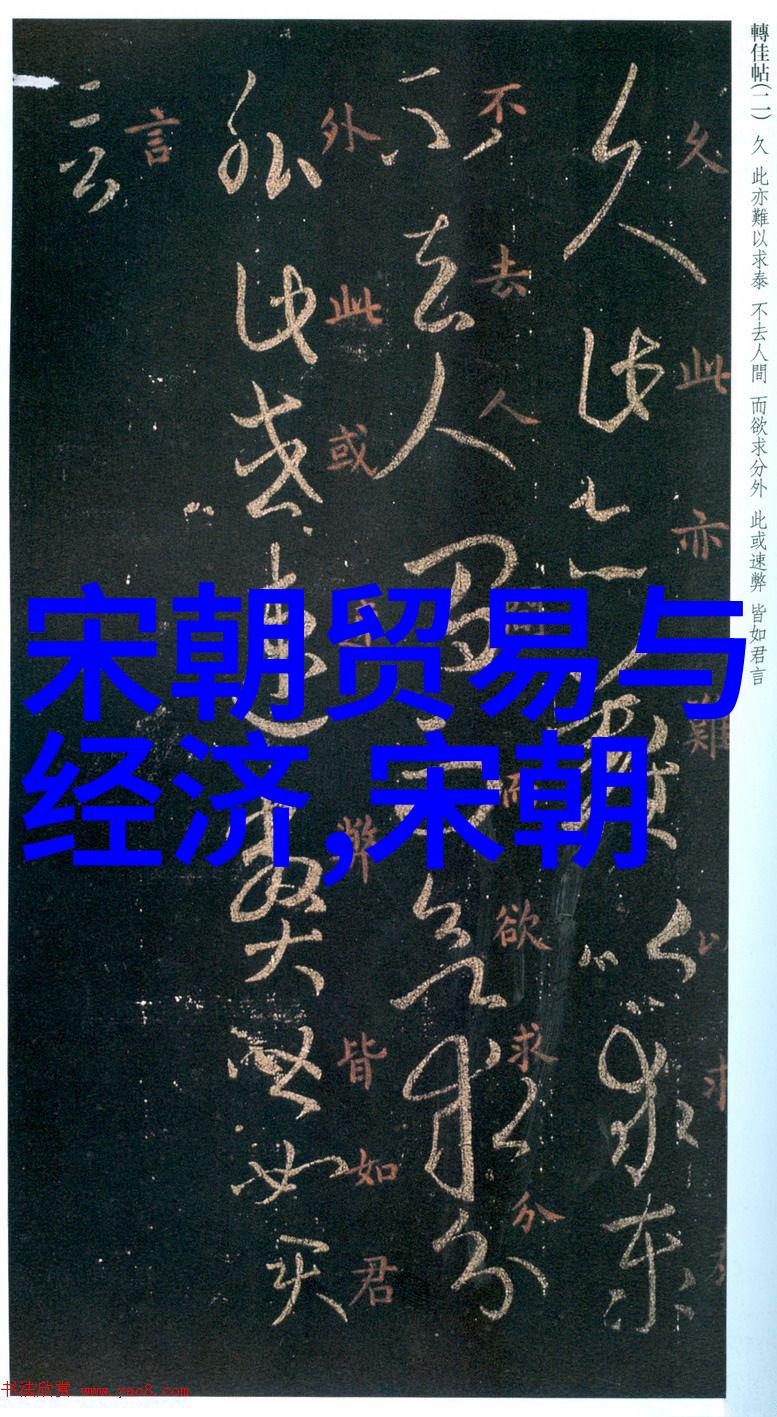 轉佳帖(二) 久 此亦難以求泰 不去人間 而欲求分外 此或速弊 皆如君言
久此亦難以求
不去人間而欲求分
外此或速弊皆如君
言
宋朝贸易与
经济,宋朝
书法欣赏 www.yac8.com